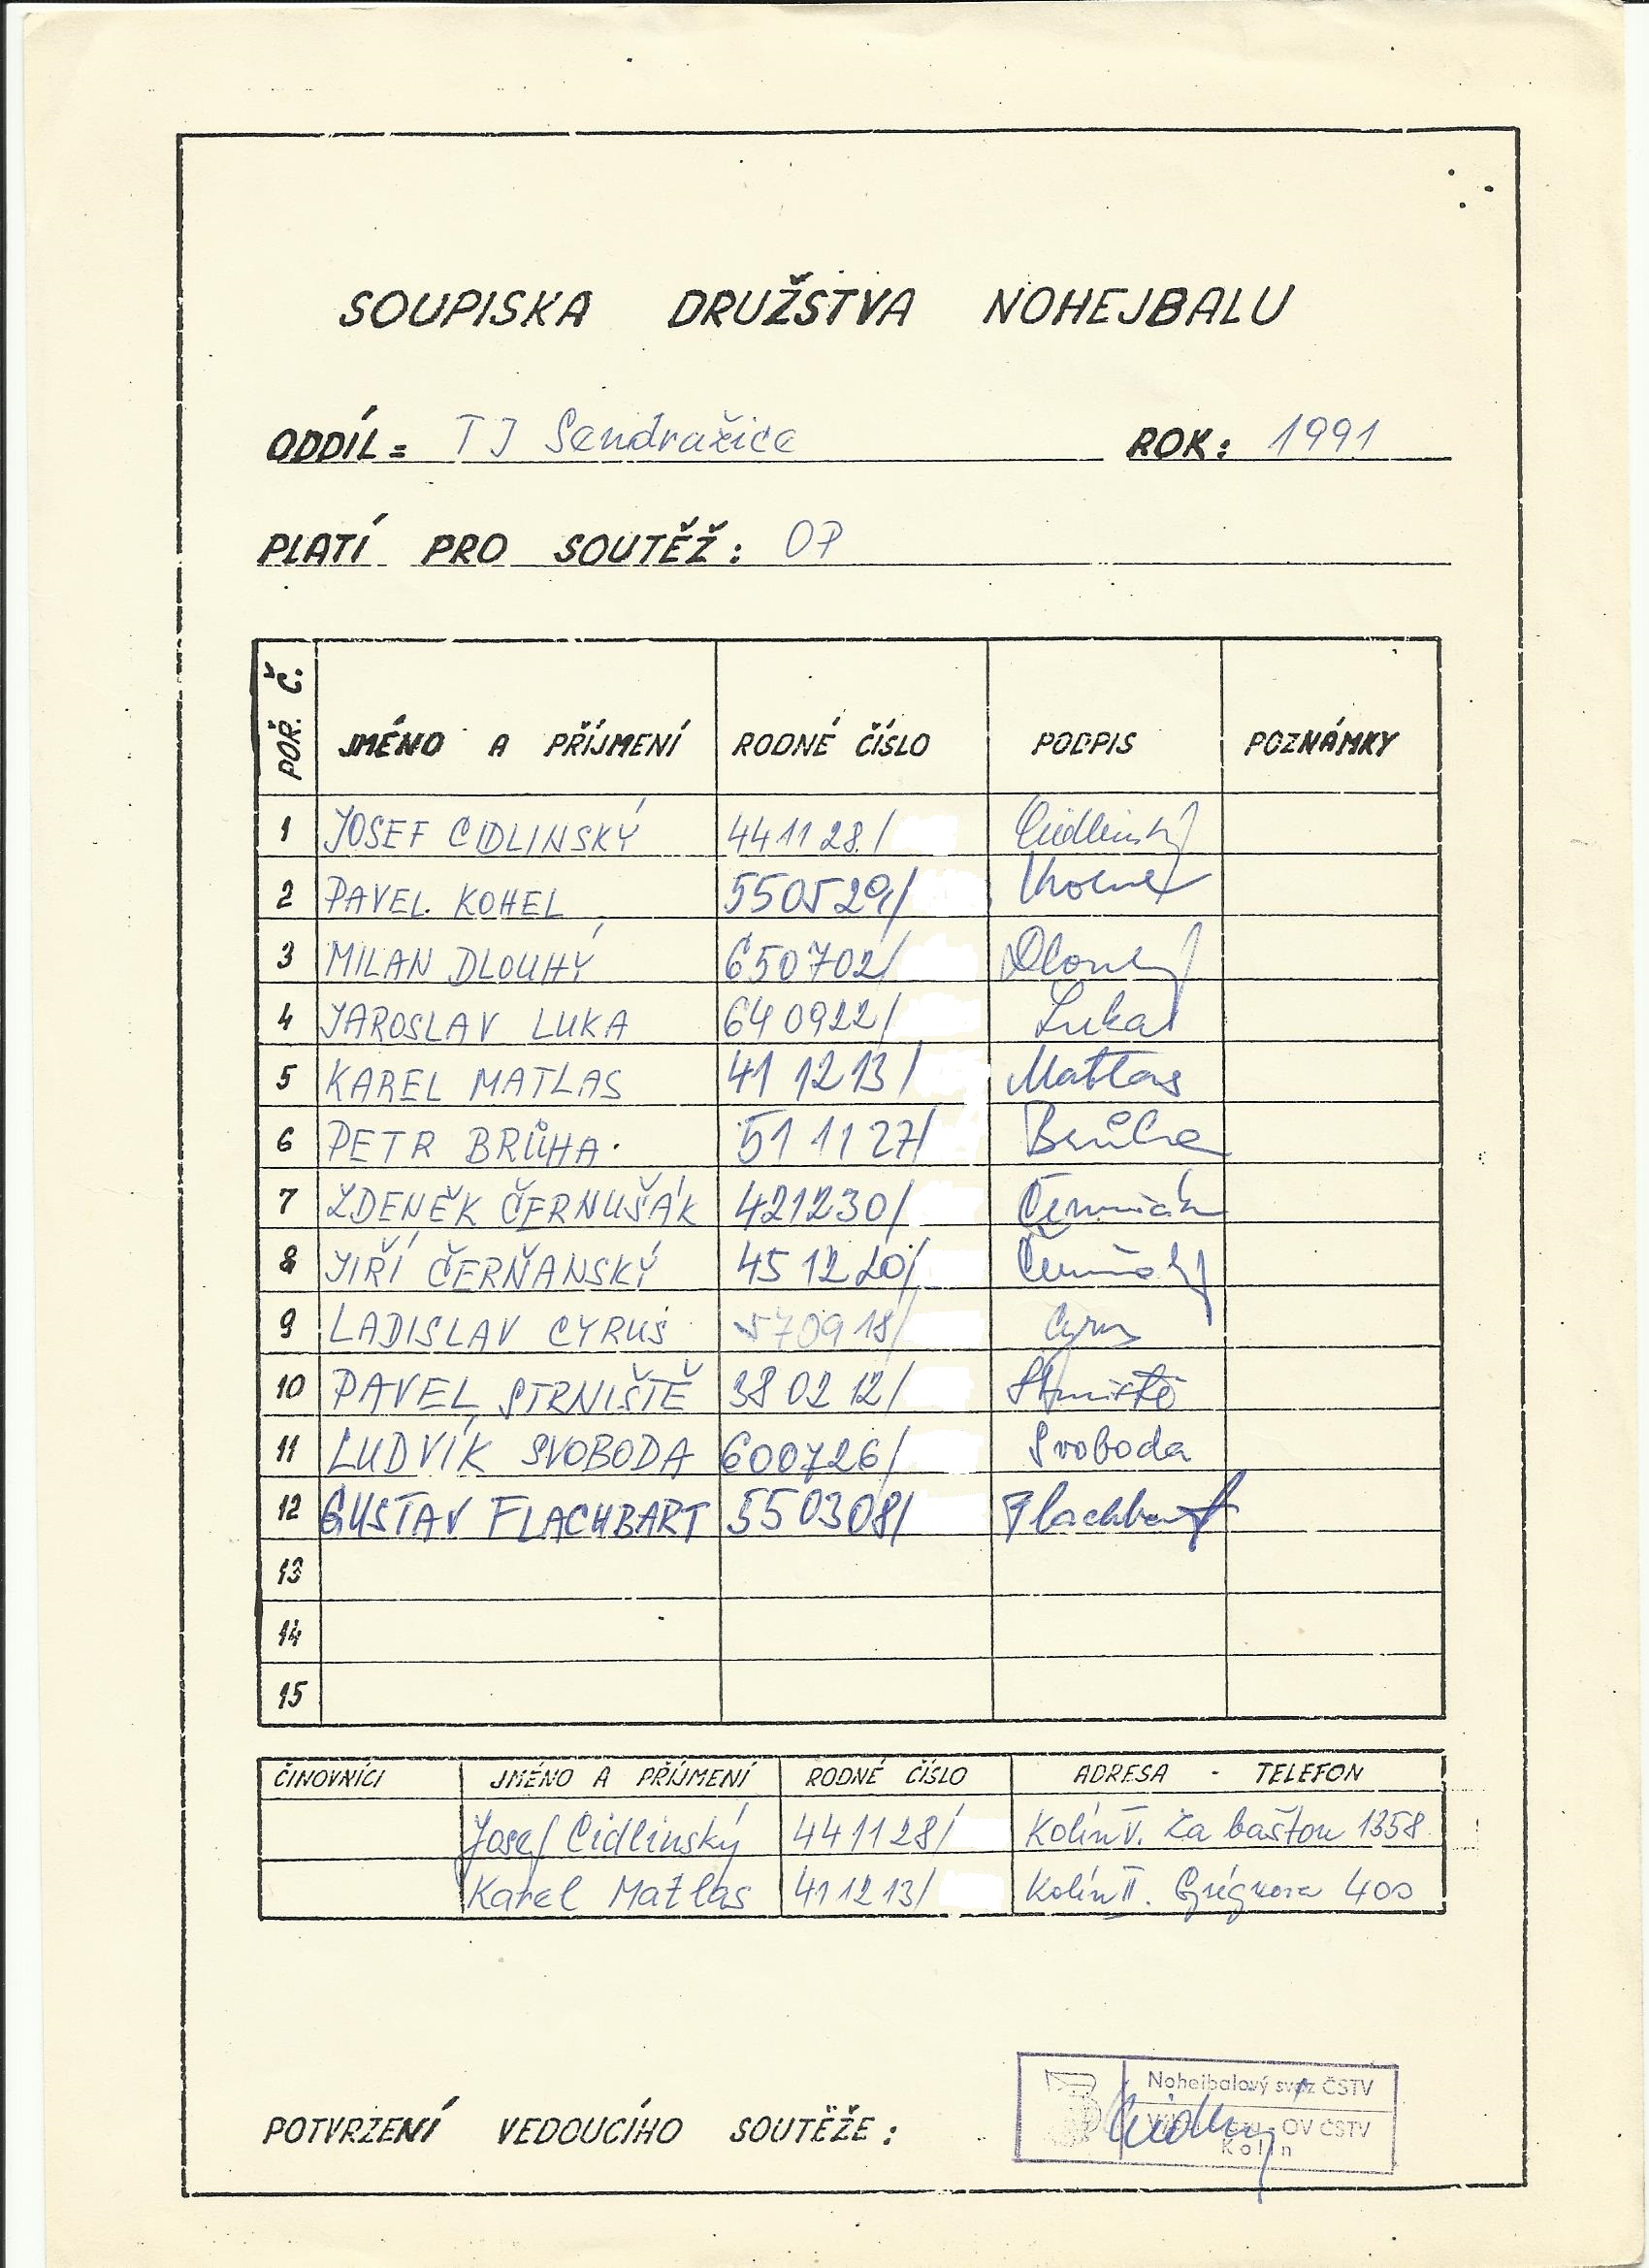 SOUPISKA DRUŽSTVA NOHEJBALU
ODDÍL: TJ Sendražice ROK: 1991
PLATÍ PRO SOUTĚŽ: OP
POŘ. Č. JMÉNO A PŘÍJMENÍ RODNÉ ČÍSLO PODPIS POZNÁMKY
1 JOSEF CIDLINSKÝ 441128/ Cidlinský
2 PAVEL KOHEL 550529/
3 MILAN DLOUHÝ 650702/ Dlouhý
4 JAROSLAV LUKA 640922/ Luka
5 KAREL MATLAS 411213/ Matlas
6 PETR BRŮHA 511127/ Brůha
7 ZDENĚK ČERNUŠÁK 421230/
8 JIŘÍ ČERŇANSKÝ 451220/
9 LADISLAV CYRUS 570918/ Cyrus
10 PAVEL STRNIŠTĚ 380212/ Strniště
11 LUDVÍK SVOBODA 600726/ Svoboda
12 GUSTAV FLACHBART 550308/ Flachbart
13
14
15
ČINOVNÍCI JMÉNO A PŘÍJMENÍ RODNÉ ČÍSLO ADRESA - TELEFON
Josef Cidlinský 441128/ Kolín V. Za baštou 1358
Karel Matlas 411213/ Kolín II. 400
POTVRZENÍ VEDOUCÍHO SOUTĚŽE:
Nohejbalový svaz ČSTV
OV ČSTV
Kolín